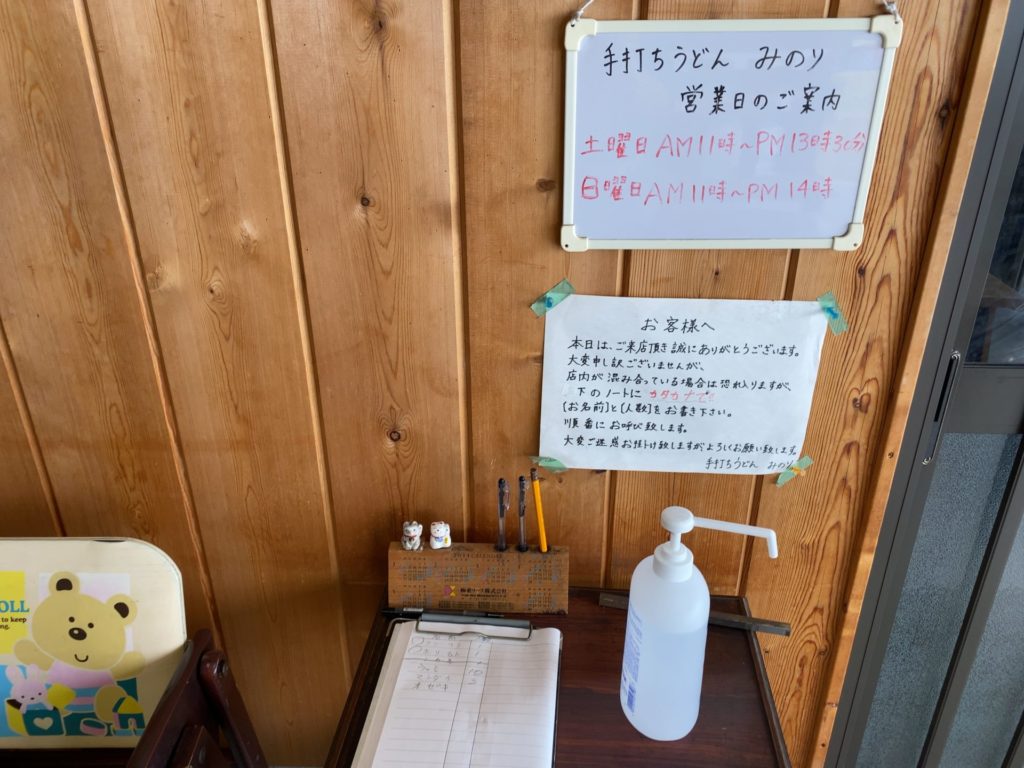 手打ちうどん みのり
営業日のご案内
土曜日 AM11時~PM13時30分
日曜日 AM11時~PM14時
お客様へ
本日は、ご来店頂き誠にありがとうございます。
大変申し訳ございませんが、
店内が混み合っている場合は恐れ入りますが、
下のノートに カタカナで!
[お名前]と[人数]をお書き下さい。
順番にお呼び致します。
大変ご迷惑お掛け致しますがよろしくお願い致します。
手打ちうどん みのり
OLL
to keep
ng.